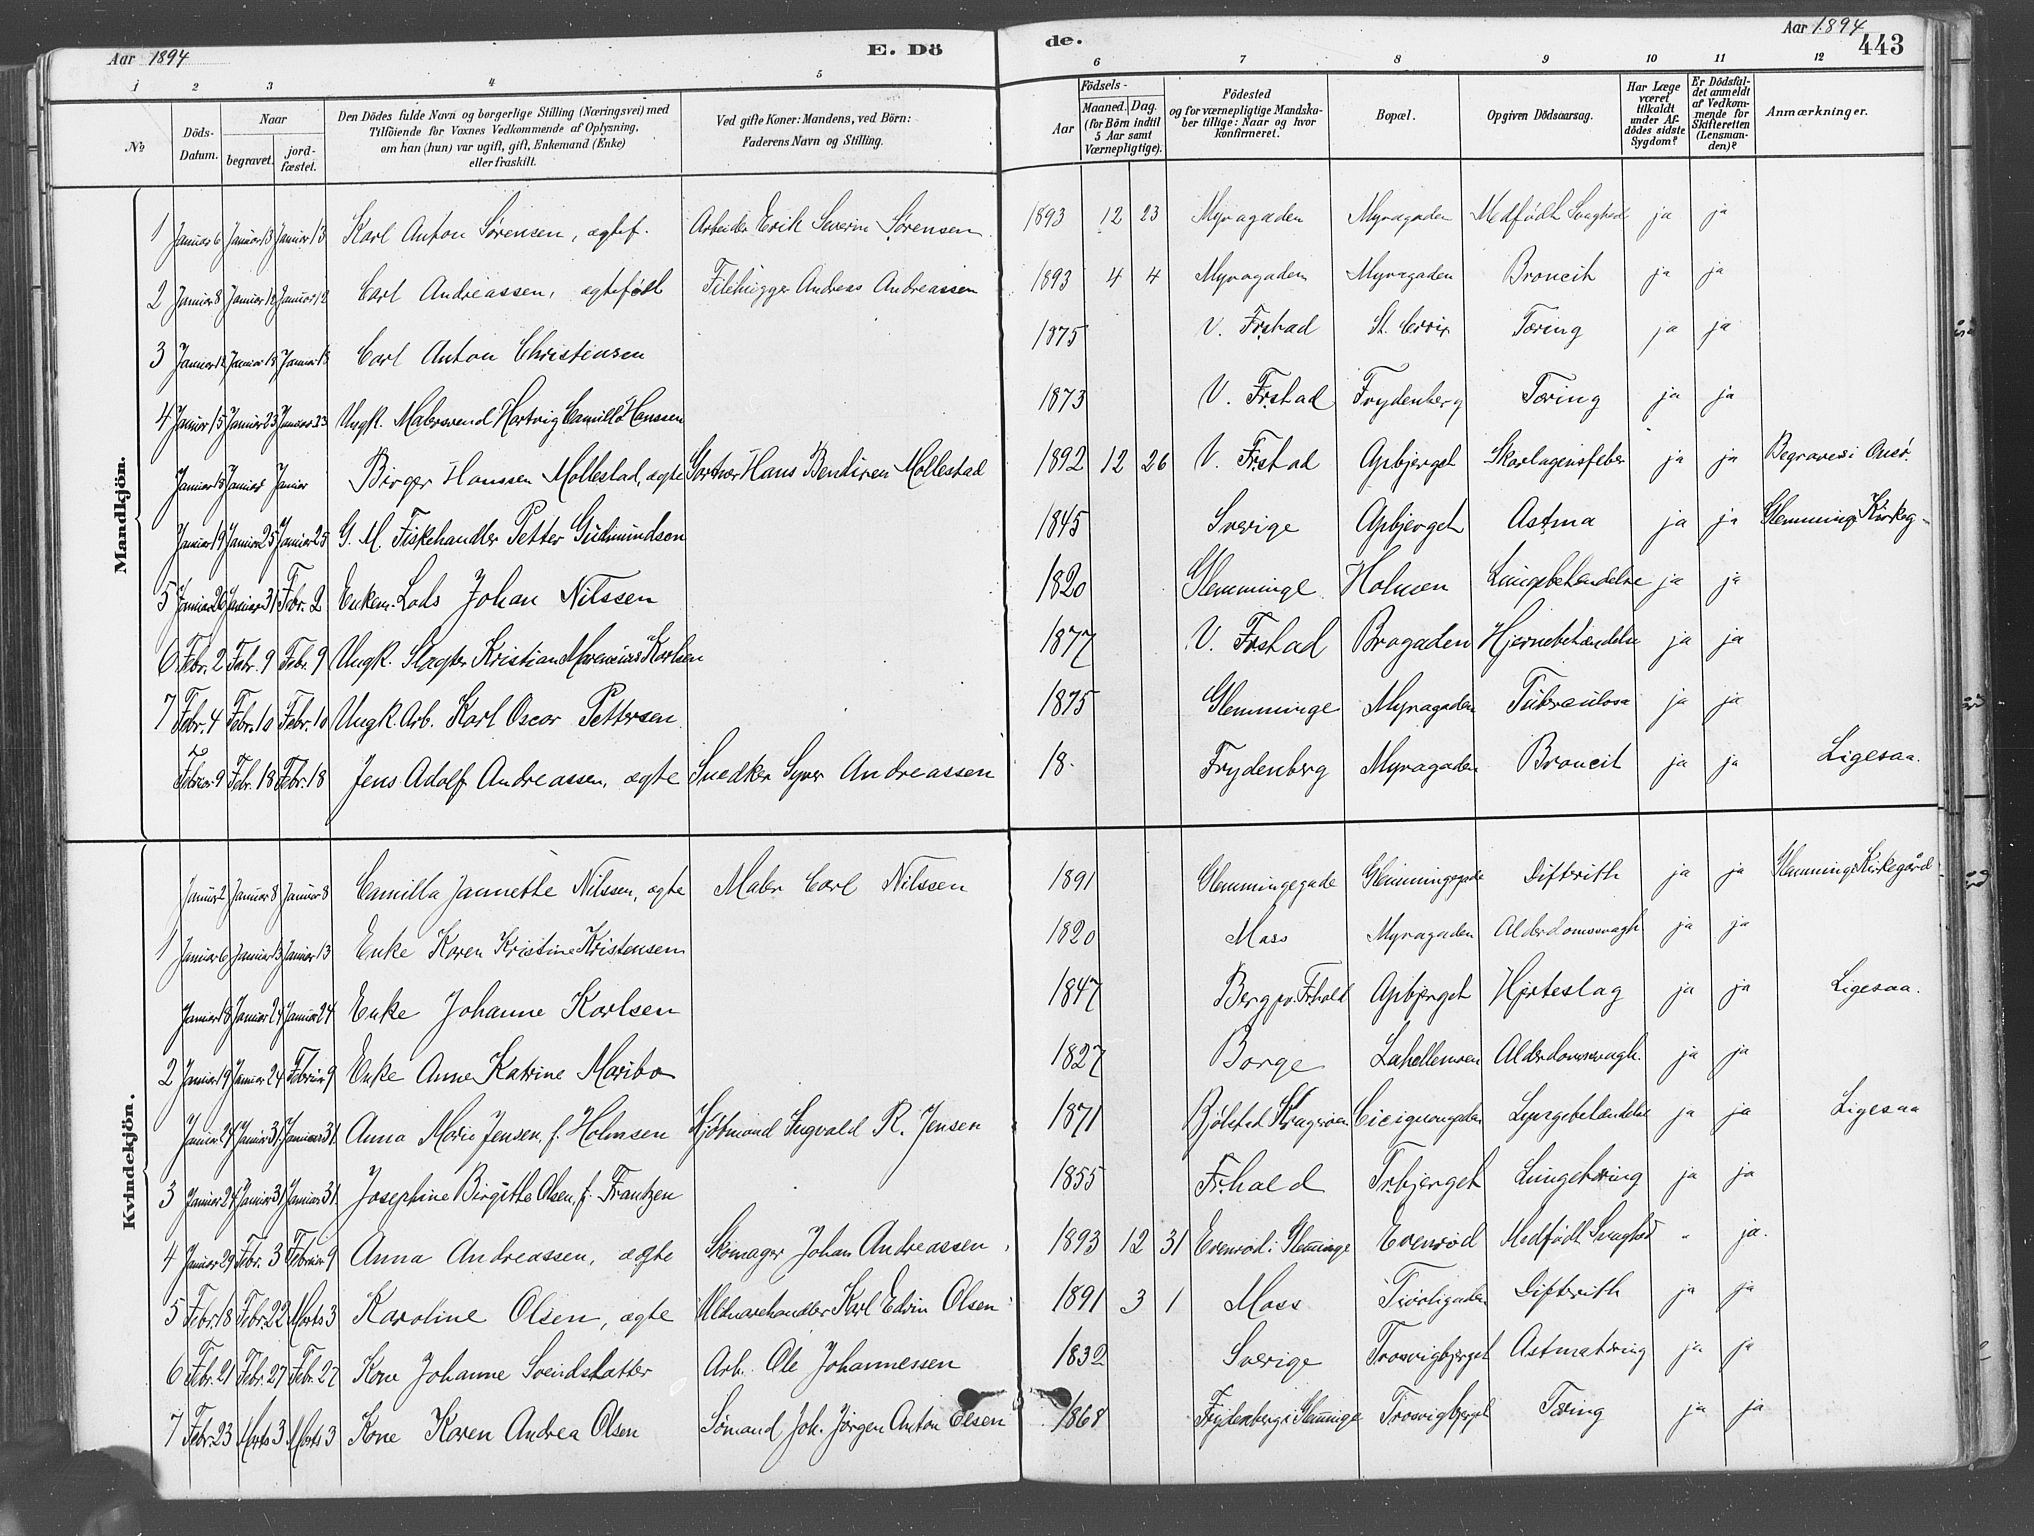 Aar 1894 E. Dö de. Aar 1894 443
1 2 3 4 5 6 7 8 9 10 11 12
No Döds-Datum. Naar begravet. jord-fæstet. Den Dödes fulde Navn og borgerlige Stilling (Næringsvei) med Tilföiende for Voxnes Vedkommende af Oplysning, om han (hun) var ugift, gift, Enkemand (Enke) eller fraskilt. Ved gifte Koner: Mandens, ved Börn: Faderens Navn og Stilling. Födsels- Aar Maaned. Dag. (for Börn indtil 5 Aar samt Værnepligtige). Födested og for værnepligtige Mandskaber tillige: Naar og hvor konfirmeret. Bopæl. Opgiven Dödsaarsag. Har Læge været tilkaldt under Afdödes sidste Sygdom? Er Dödsfaldet anmeldt af Vedkommende for Skifteretten (Lensmanden)? Anmærkninger.
Mandkjön.
1 Januar 6 Januar 13 Januar 13 Karl Anton Sørensen, ægtef. Arbeider Erik Severin Sørensen 1893 12 23 Myragaden Myragaden Medfødt Svaghed ja ja
2 Januar 8 Januar 12 Januar 12 Carl Andreassen, ægtefødt Filehugger Andreas Andreassen 1893 4 4 Myragaden Myragaden Broncit ja ja
3 Januar 12 Januar 18 Januar 18 Carl Anton Christiansen 1875 V. Frstad St. Croix Tæring ja ja
4 Januar 15 Januar 23 Januar 23 Ungk. Malersvend Hartvig Camillo Hanssen 1873 V. Frstad Frydenberg Tæring ja ja
Januar 18 Januar Januar Birger Hanssen Mollestad, ægte Gartner Hans Bendixen Mollestad 1892 12 26 V. Frstad Apbjerget Skarlagensfeber ja ja Begraves i Onsø.
Januar 19 Januar 25 Januar 25 G. M. Fiskehandler Petter Gudmundsen 1845 Sverige Apbjerget Astma ja ja Glemminge Kirkeg-
5 Januar 26 Januar 31 Febr. 2 Enkem. Lods Johan Nilssen 1820 Glemminge Holmen Lungebetændelse ja ja
6 Febr. 2 Febr. 9 Febr. 9 Ungk. Slagter Kristian Marenius Karlsen 1877 V. Frstad Brogaden Hjernebetændelse ja ja
7 Febr. 4 Febr. 10 Febr. 10 Ungk. Arb. Karl Oscar Pettersen 1875 Glemminge Myragaden Tuberculosa ja ja
Februar 9 Febr. 18 Febr. 18 Jens Adolf Andreassen, ægte Snedker Syver Andreassen 18- Frydenberg Myragaden Broncit ja ja Ligesaa.
Kvindekjön.
Januar 2 Januar 8 Januar 8 Camilla Jannette Nilssen, ægte Maler Carl Nilssen 1891 Glemmingegade Glemmingegade Difterith ja ja Glemminge Kirkegård
1 Januar 6 Januar 13 Januar 13 Enke Karen Kristine Kristensen 1820 Moss Myragaden Alderdomssvagh. ja ja
Januar 18 Januar 24 Januar 24 Enke Johanne Karlsen 1847 Berg pr. Frhald Apbjerget Hjerteslag ja ja Ligesaa.
2 Januar 19 Januar 24 Februar 9 Enke Anne Katrine Maribo 1827 Borge Lahellemoen Alderdomssvagh. ja ja
Januar 24 Januar 31 Januar 31 Anna Marie Jensen, f. Holmsen Kjøbmand Sigvald R. Jensen 1871 Cicignongaden Lungebetændelse ja ja Ligesaa
3 Januar 24 Januar 31 Januar 31 Josephine Birgitte Olsen, f. Frantzen 1855 Fr.hald Trbjerget Lungetæring ja ja
4 Januar 29 Febr. 3 Februar 9 Anna Andreassen, ægte Skomager Johan Andreassen 1893 12 31 Evenrød i Glemminge Evenrød Medfødt Svaghed " ja.
5 Febr. 18 Febr. 22 Marts 3 Karoline Olsen, ægte Uldvarehandler Karl Edvin Olsen 1891 3 1 Moss Tivoligaden Difterith ja ja
6 Febr. 21 Febr. 27 Febr. 27 Kone Johanne Svendsdatter Arb. Ole Johannessen 1832 Sverige Trosvigbjerget Astmatæring ja ja
7 Febr. 23 Marts 3 Marts 3 Kone Karen Andrea Olsen Sömand Joh. Jörgen Anton Olsen 1868 Frydenberg i Glemminge Trosvigbjerget Tæring ja ja